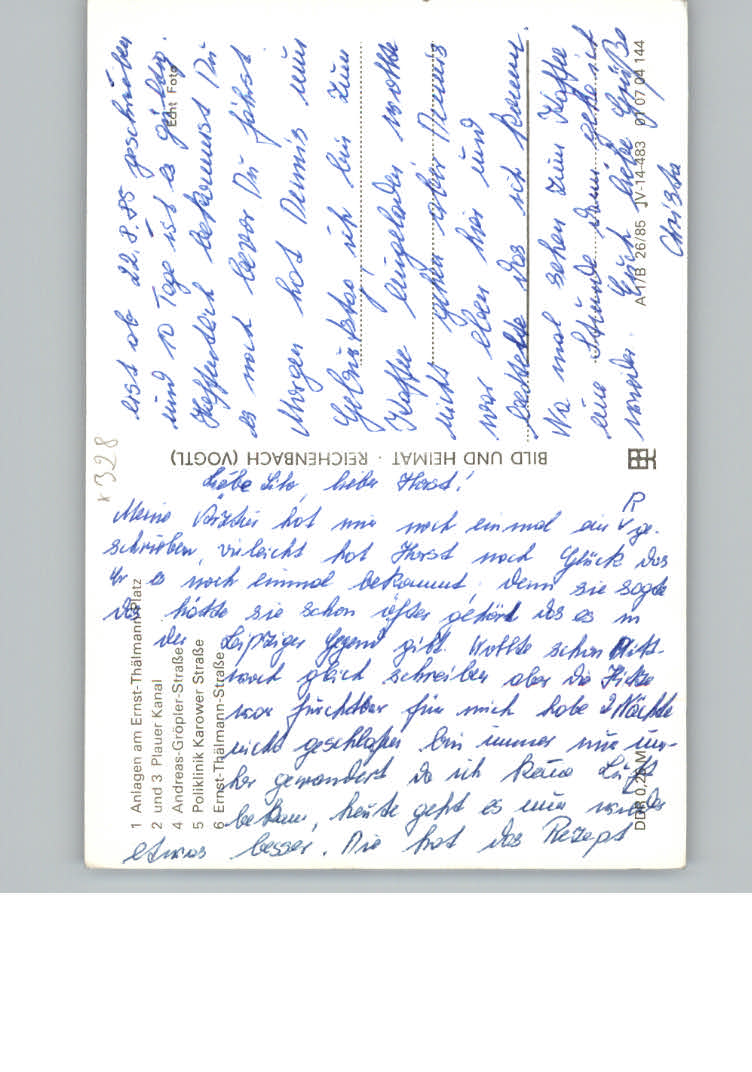 Liebe Lilo, lieber Horst!
Meine Ärztin hat mir noch einmal ein R ge-
schrieben, vieleicht hat Horst noch Glück das
Er es noch einmal bekommt, denn sie sagte
das hätte sie schon öfter gehört das es in
der Leipziger Gegend gibt. Wollte schon Mitt-
woch gleich schreiben aber die Hitze
war furchtbar für mich habe 2 Nächte
nicht geschlafen bin immer nur um-
her gewandert da ich keine Luft
bekam, heute geht es nun wieder
etwas besser. Die hat das Rezept
erst ab 22.8.85 geschrieben
und 10 Tage ist es gültig.
Hoffentlich bekommst Du
es noch bevor Du fährst.
Morgen hat Dennis nun
Geburtstag ich bin zum
Kaffee eingeladen wollte
nicht gehen aber Dennis
war eben hier und
bettelte das ich komm.
Na mal sehen zum Kaffee
eine Stunde dann gehe ich
wieder. Euch liebe Grüße
Christa
x 328
1 Anlagen am Ernst-Thälmann-Platz
2 und 3 Plauer Kanal
4 Andreas-Gröpler-Straße
5 Poliklinik Karower Straße
6 Ernst-Thälmann-Straße
BILD UND HEIMAT · REICHENBACH (VOGTL)
Echt Foto
A 1/B 26/85 IV-14-483 01 07 04 144
DDR 0,20 M